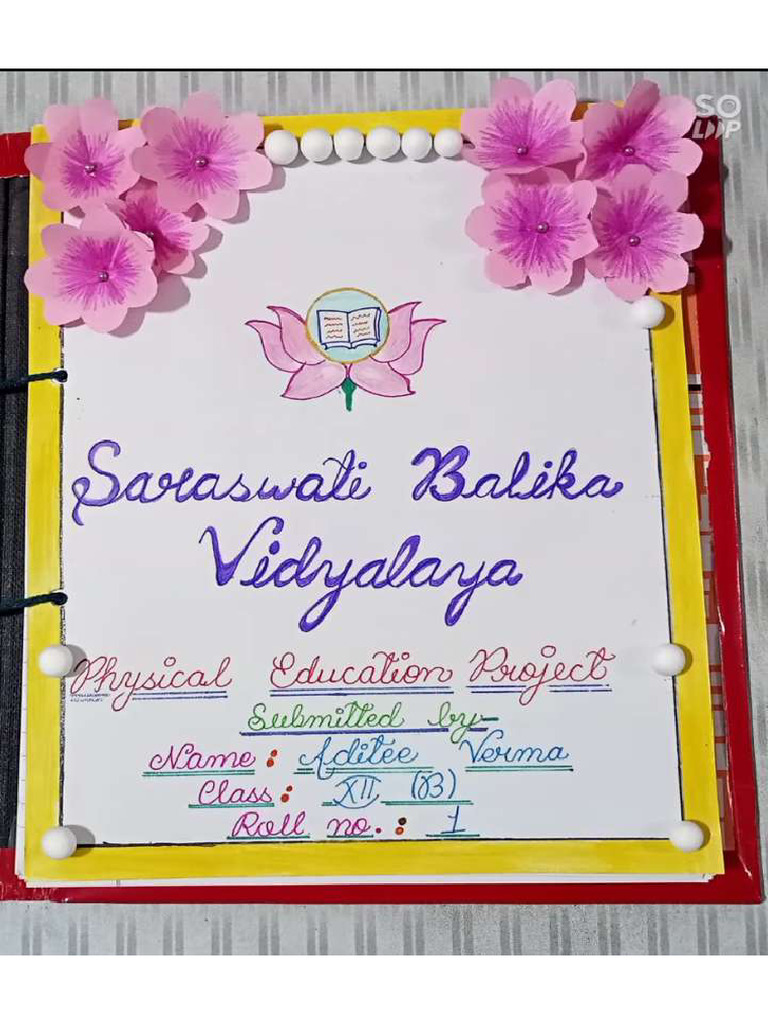 SO
LOOP
Saraswati Balika
Vidyalaya
Physical Education Project
Submitted by-
Name : Aditee Verma
Class : XII (B)
Roll no. : 1